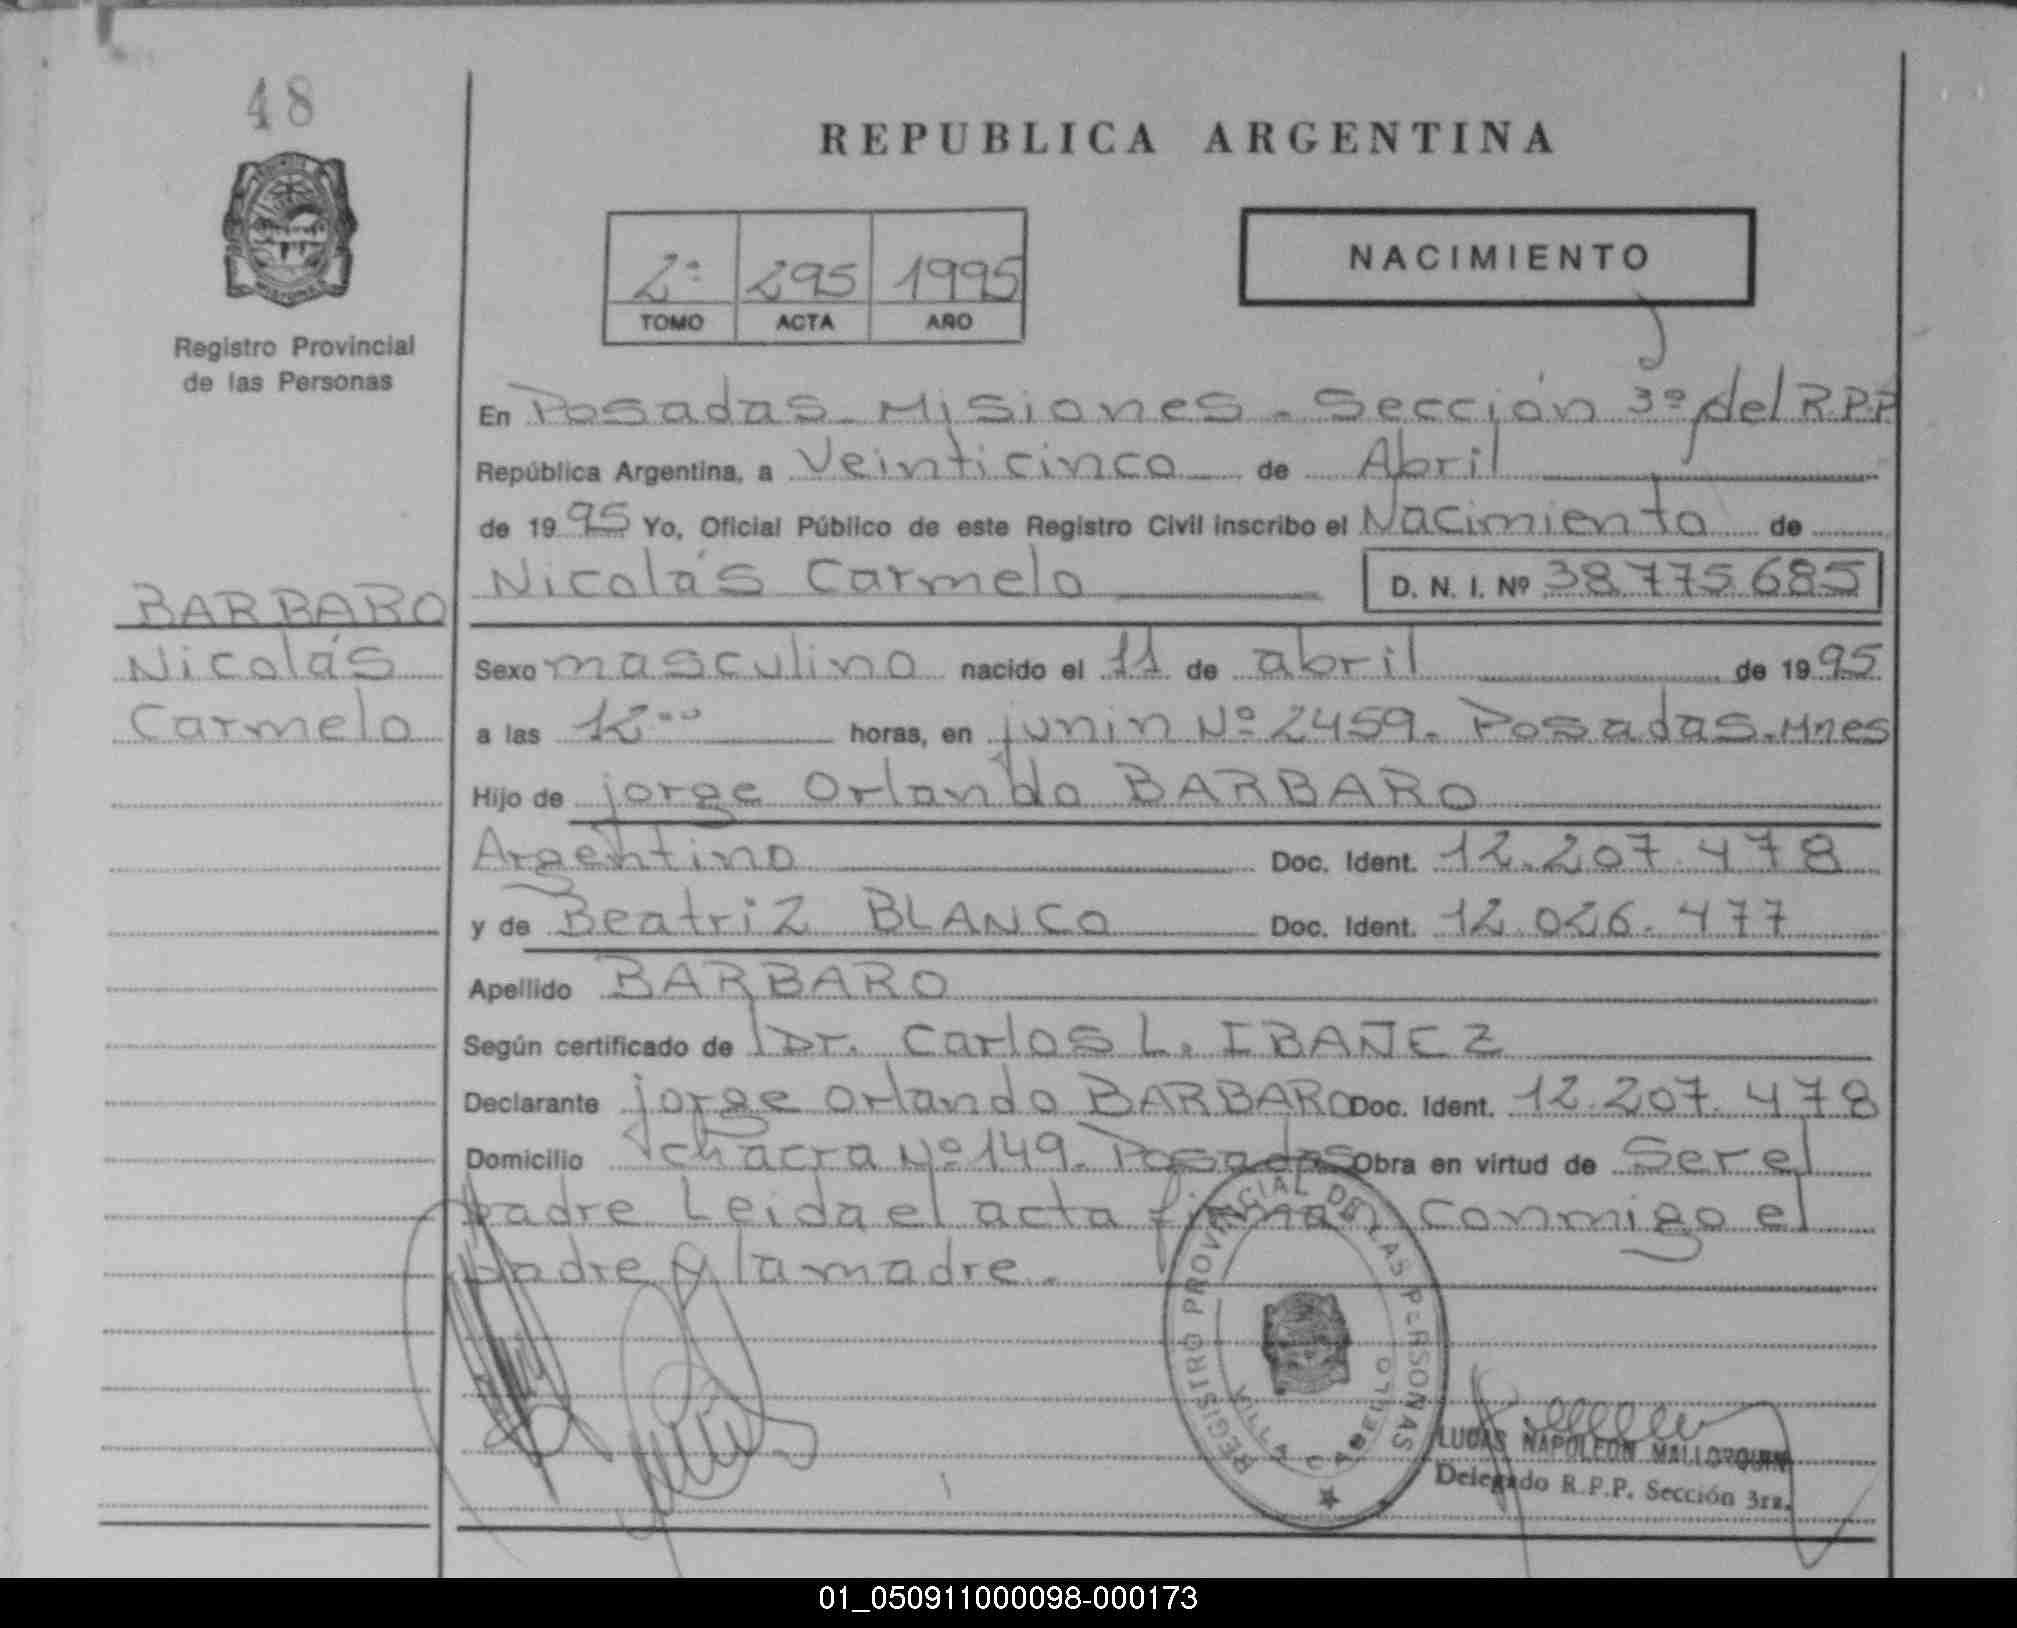 48
REPUBLICA ARGENTINA
2º 295 1995
TOMO ACTA AÑO
NACIMIENTO
Registro Provincial
de las Personas
En Posadas - Misiones - Sección 3º del R.P.P
República Argentina, a Veinticinco de Abril
de 1995 Yo, Oficial Público de este Registro Civil inscribo el Nacimiento de
Nicolás Carmelo D. N. I. Nº 38.775.685
BARBARO
Nicolás
Carmelo
Sexo masculino nacido el 11 de abril de 1995
a las 12°° horas, en junin Nº 2459. Posadas. Mnes
Hijo de jorge Orlando BARBARO
Argentino Doc. Ident. 12.207.478
y de Beatriz BLANCO Doc. Ident. 12.026.477
Apellido BARBARO
Según certificado de Dr. Carlos L. IBAÑEZ
Declarante jorge Orlando BARBARO Doc. Ident. 12.207.478
Domicilio chacra Nº 149. Posadas Obra en virtud de Ser el
padre Leida el acta firman conmigo el
padre y la madre.
REGISTRO PROVINCIAL DE LAS PERSONAS
VILLA CABELLO
LUCAS NAPOLEON MALLORQUIN
Delegado R.P.P. Sección 3ra.
01_050911000098-000173